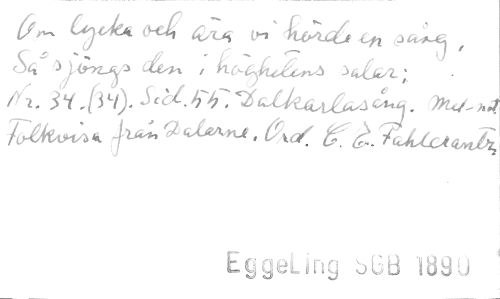 Om lycka och ära vi hörde en sång,
Så sjöngs den i höghetens salar;
Nr. 34.(34). Sid. 55. Dalkarlasång. Med not
Folkvisa från Dalarne. Ord. C. E. Fahlcrantz
EggeLing SGB 1890